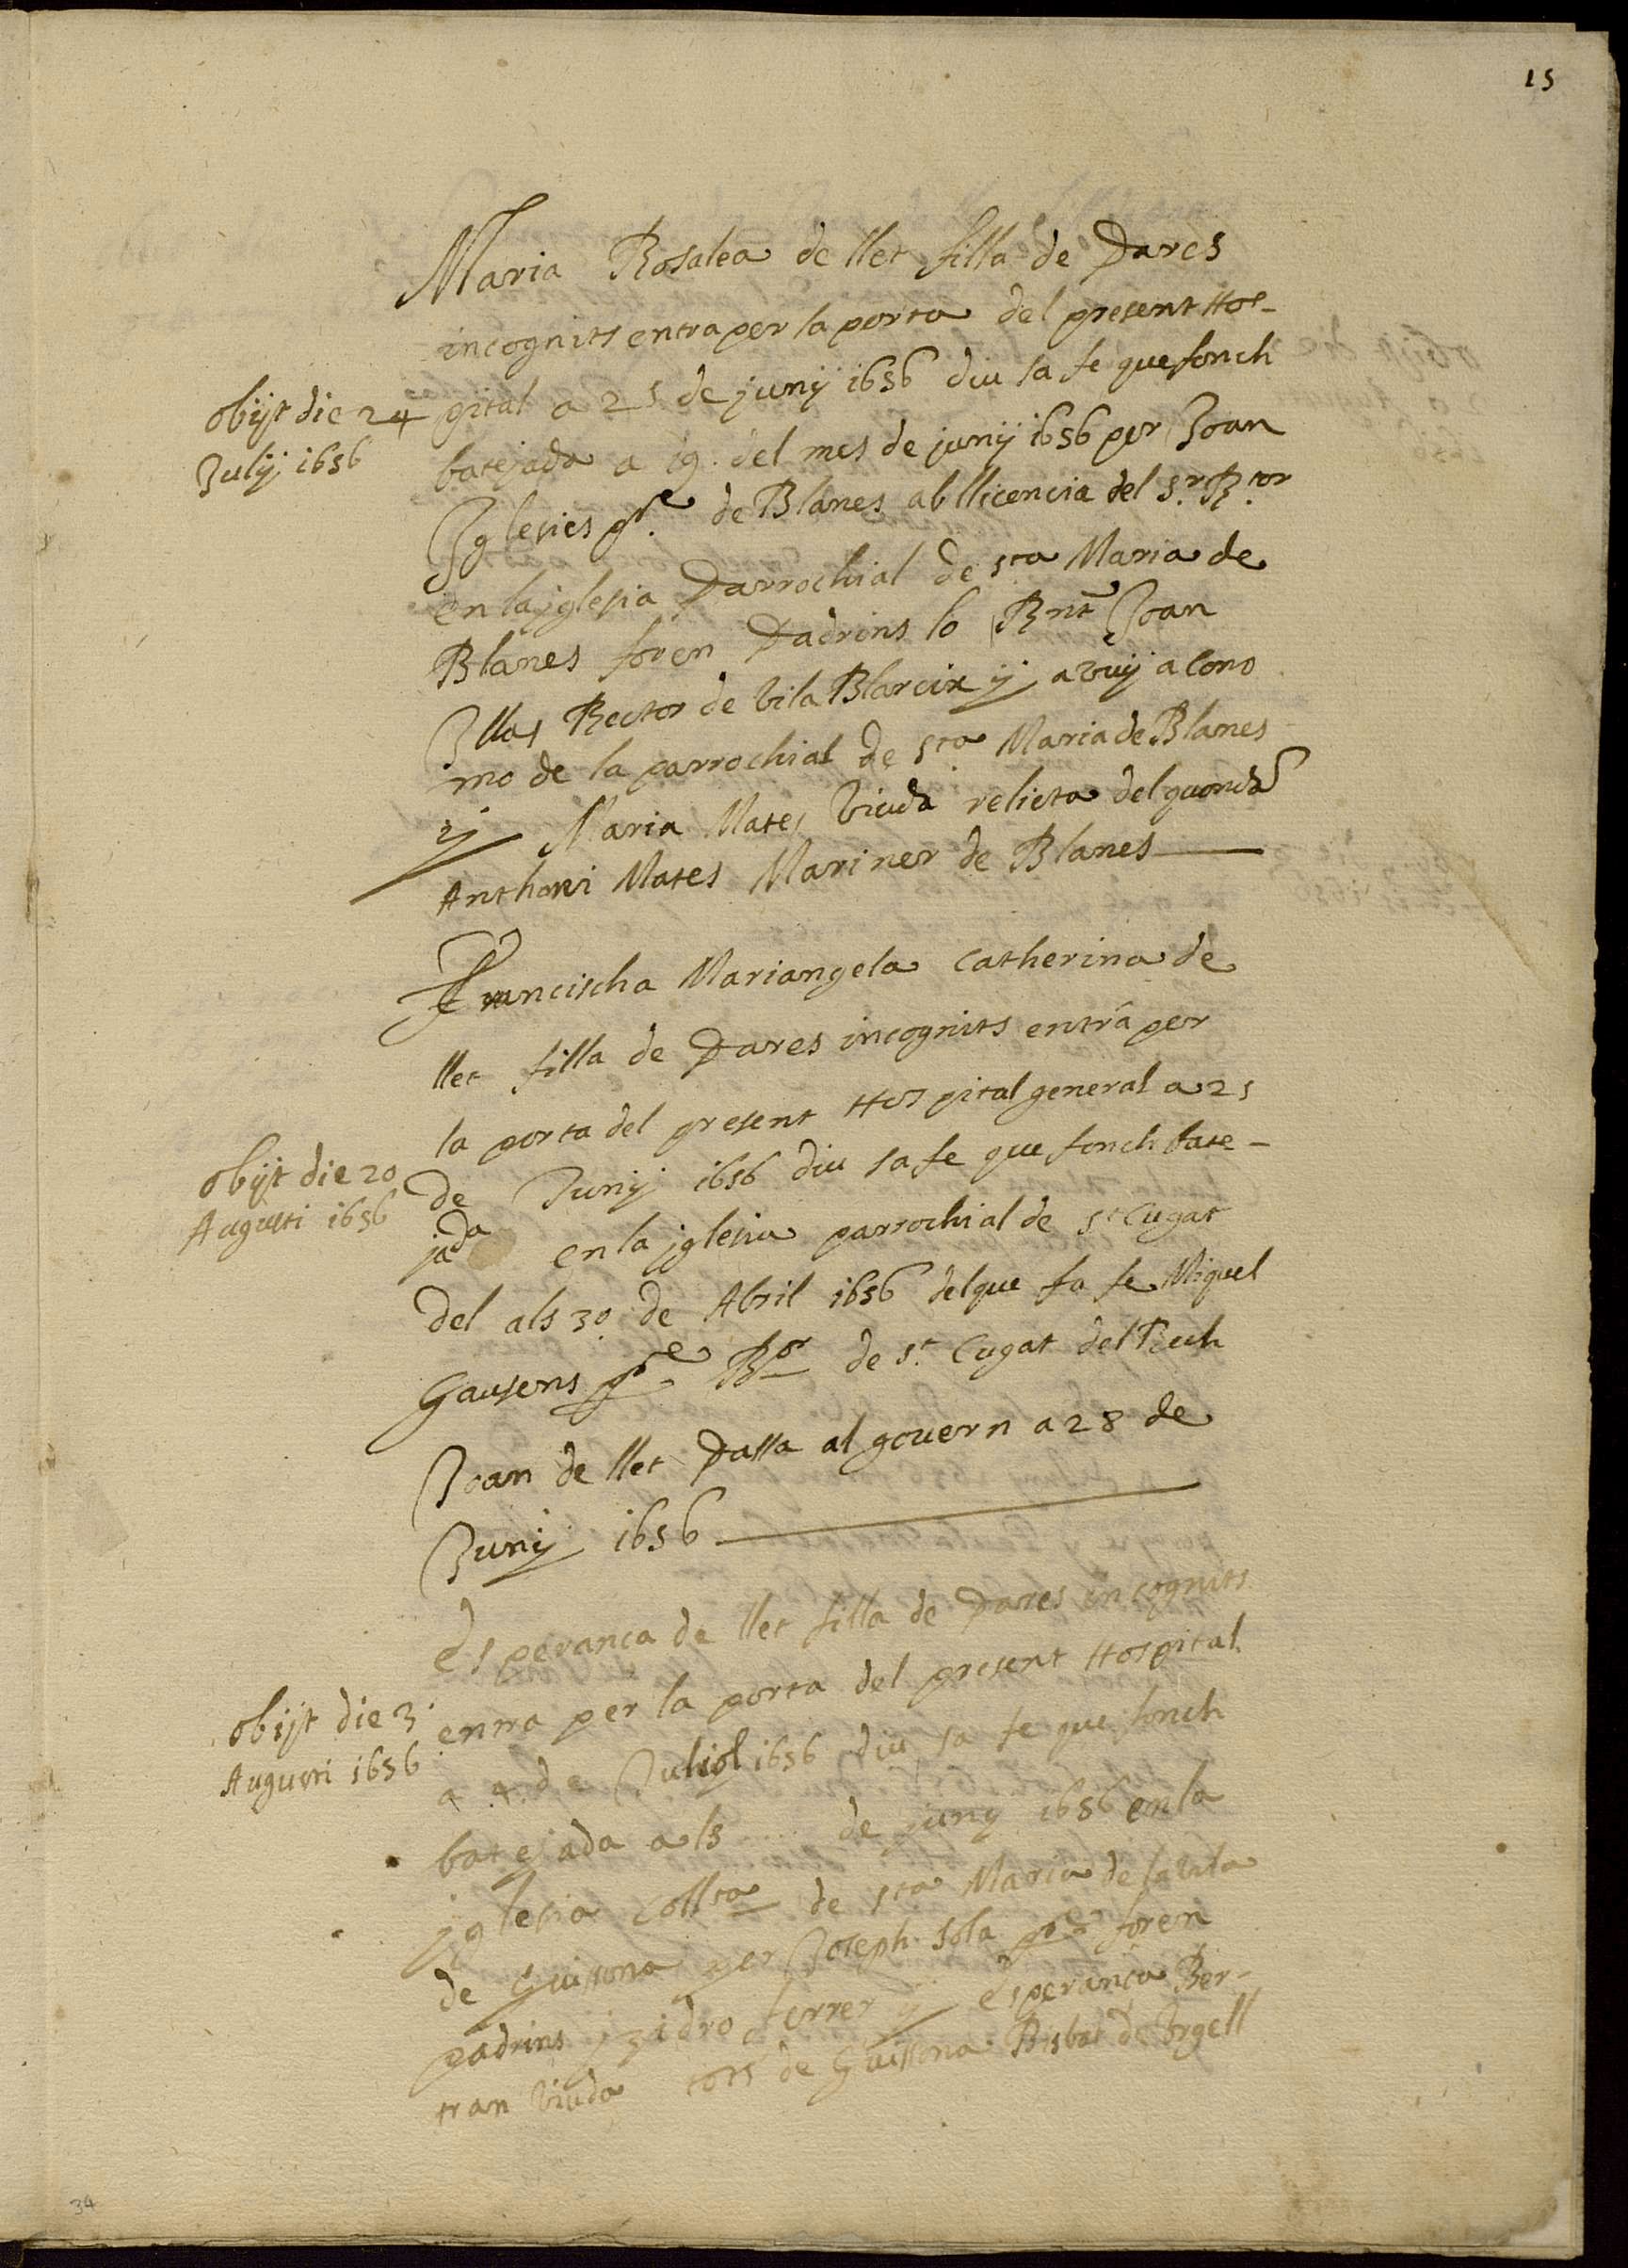 15
Maria Rosalea de llet filla de Pares
incognits entra per la porta del present Hos-
pital a 25 de junÿ 1656 diu sa fe que fonch
batejada a 19. del mes de junÿ 1656 per Joan
Iglesies pre. de Blanes ab llicencia del Sr. Rtor
en la jglesia Parrochial de Sta Maria de
Blanes foren Padrins lo Rnt Joan
Illas Rector de Vila Blareix ÿ avuÿ a Cono
mo de la parrochial de Sta. Maria de Blanes
ÿ Maria Mates Viuda relicta del quondã
Anthoni Mates Mariner de Blanes
obijt die 24
Julÿ 1656
Francischa Mariangela Catherina de
llet filla de Pares incognits entrà per
la porta del present Hospital general a 25
de Junÿ 1656 diu sa fe que fonch bate-
jada en la jglesia parrochial de St Cugat
del als 30. de Abril 1656 del que fa fe Miquel
Gausens pre Ror de St. Cugat del Rech
obijt die 20
Augusti 1656
Joan de llet Passa al govern a 28 de
Junÿ 1656
Esperanca de llet filla de Pares incognits
entra per la porta del present Hospital
a 4. de Juliol 1656 diu sa fe que fonch
batejada als .... de juny 1656 en la
jglesia Collta de Sta Maria de la vila
de Guissona per Joseph Sola pre foren
padrins jzidro ferrer ÿ Esperança Ber-
tran Viuda tots de Guissona Bisbat de Vrgell
obijt die 3
Augusti 1656
34